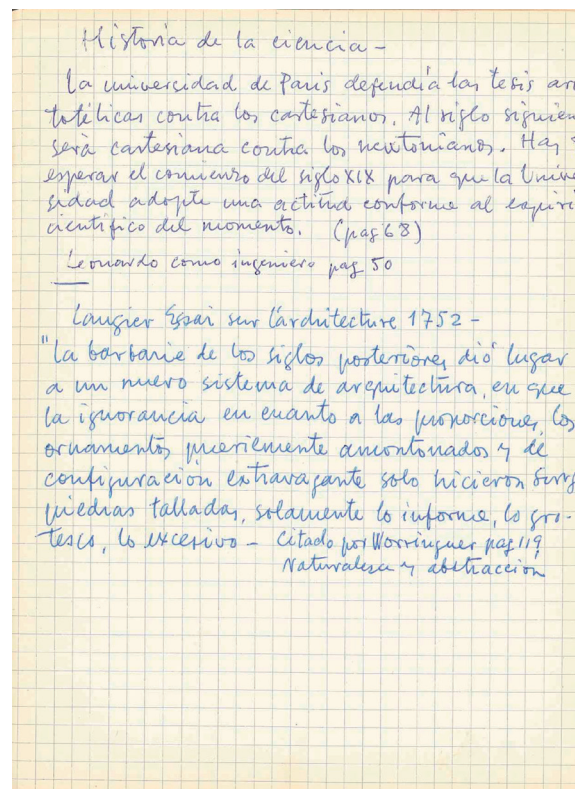 Historia de la ciencia -
La universidad de Paris defendía las tesis aris
totélicas contra los cartesianos. Al siglo siguien
será cartesiana contra los newtonianos. Hay
esperar el comienzo del siglo XIX para que la Unive
sidad adopte una actitud conforme al espiri
científico del momento. (pag 68)
Leonardo como ingeniero pag 50
Laugier Essai sur l'architecture 1752 -
"La barbarie de los siglos posteriores dió lugar
a un nuevo sistema de arquitectura, en que
la ignorancia en cuanto a las proporciones, los
ornamentos puerilmente amontonados y de
configuración extravagante solo hicieron surg
piedras talladas, solamente lo informe, lo gro-
tesco, lo excesivo - Citado por Worringuer pag 119
Naturaleza y abstracción